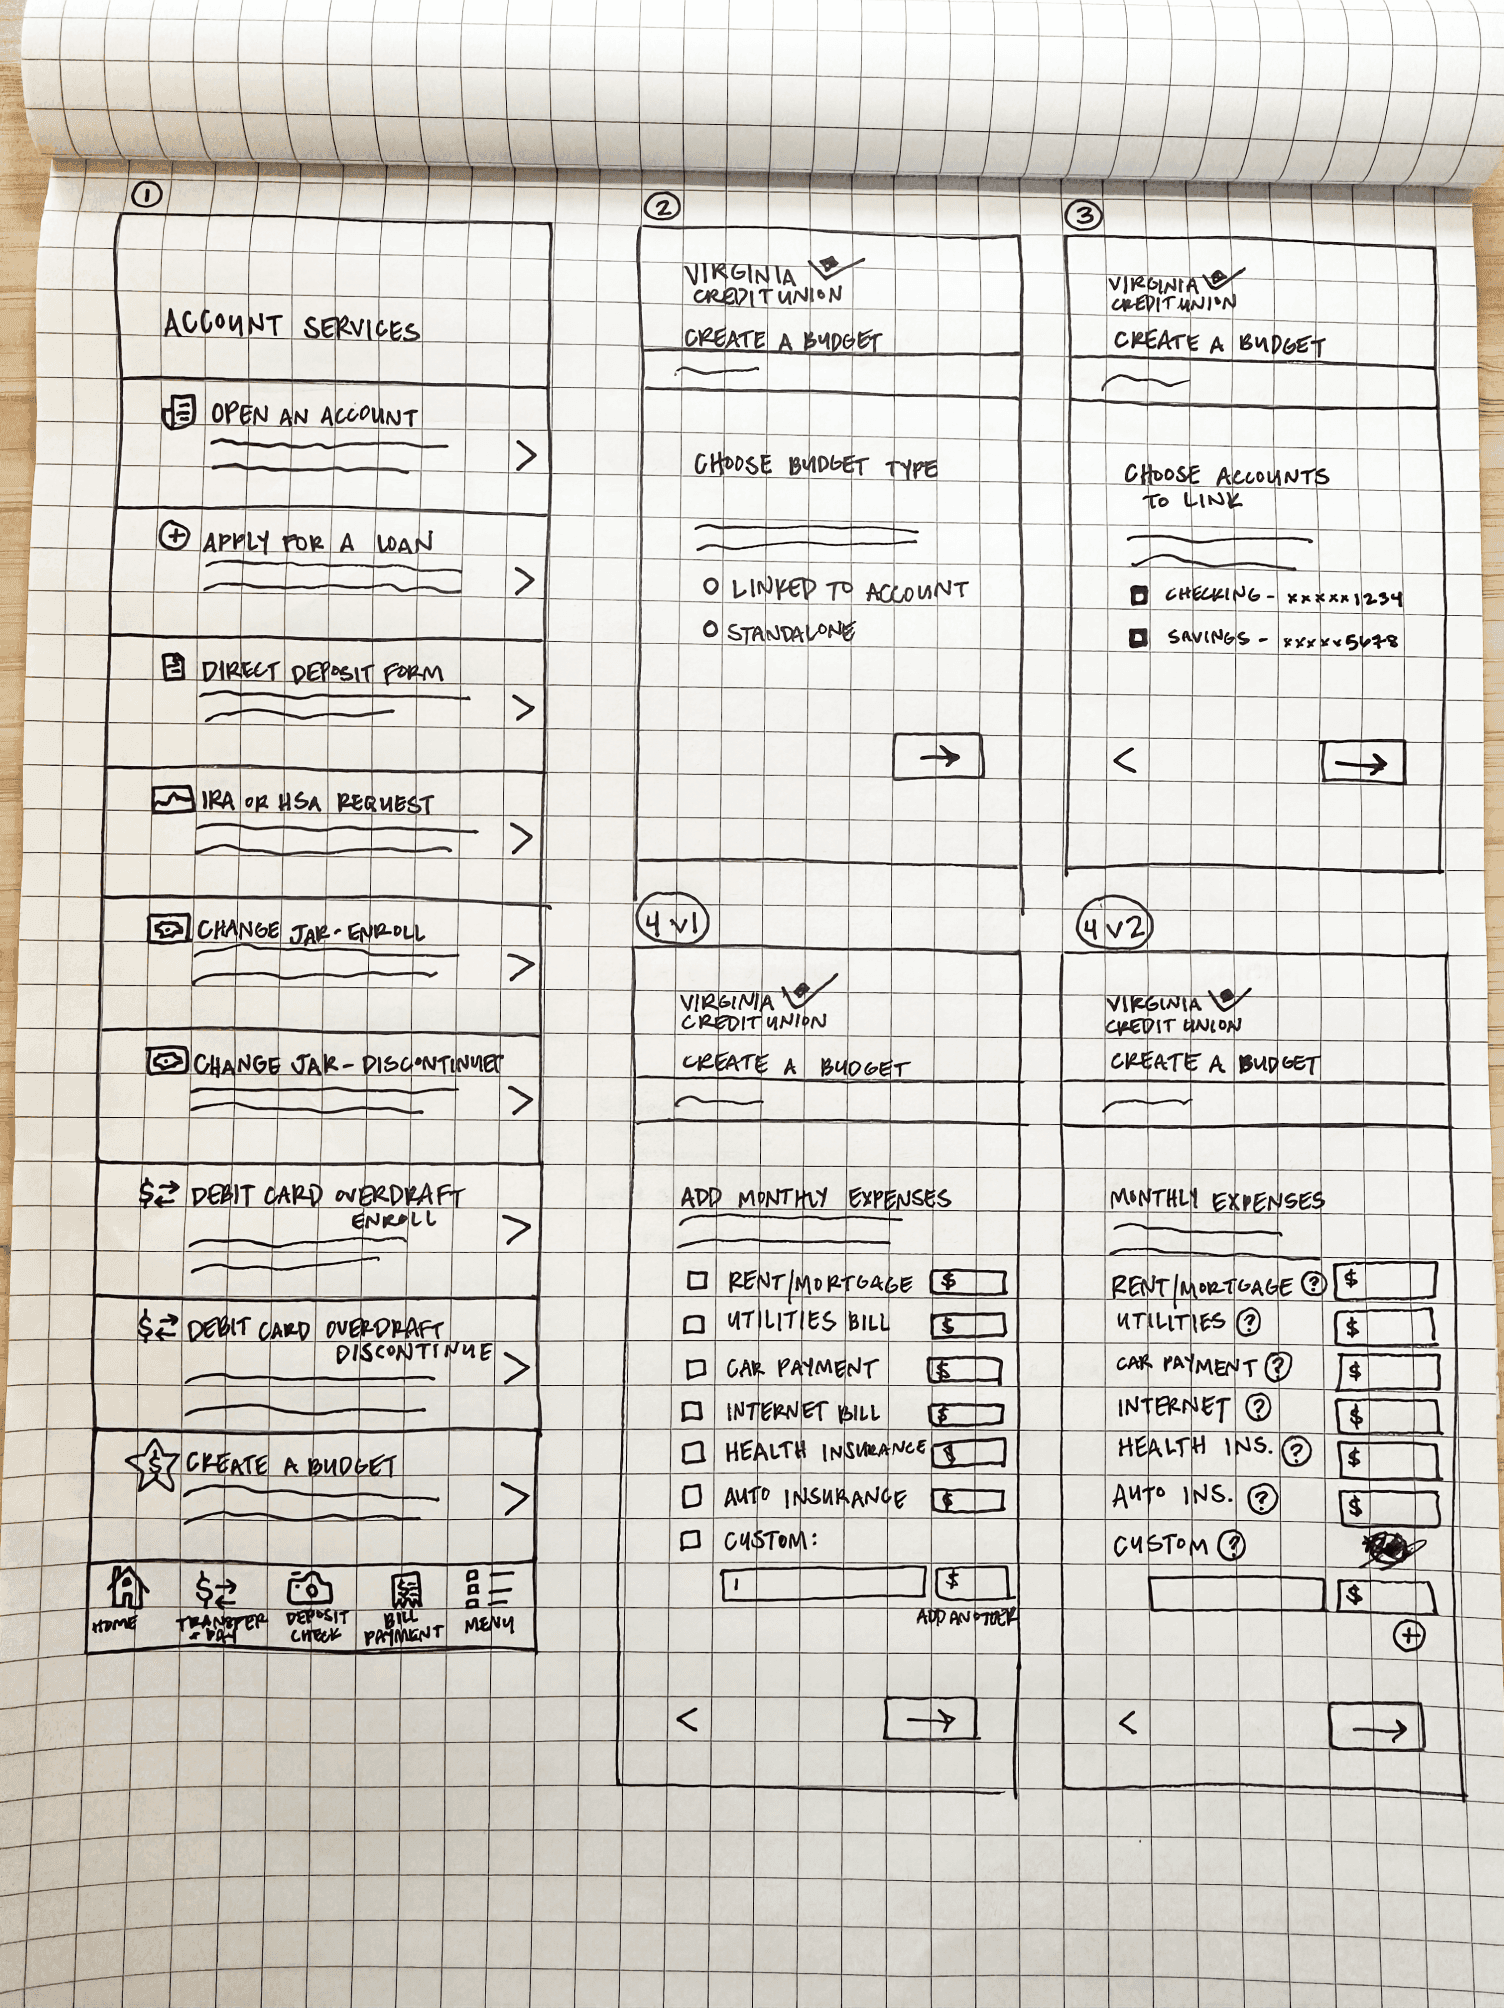 1
ACCOUNT SERVICES
OPEN AN ACCOUNT
>
+ APPLY FOR A LOAN
>
DIRECT DEPOSIT FORM
>
IRA OR HSA REQUEST
>
CHANGE JAR - ENROLL
>
CHANGE JAR - DISCONTINUE
>
$ DEBIT CARD OVERDRAFT
ENROLL
>
$ DEBIT CARD OVERDRAFT
DISCONTINUE
>
$ CREATE A BUDGET
>
HOME
$
TRANSFER
+ PAY
DEPOSIT
CHECK
$
BILL
PAYMENT
MENU
2
VIRGINIA
CREDIT UNION
CREATE A BUDGET
CHOOSE BUDGET TYPE
LINKED TO ACCOUNT
STANDALONE
→
3
VIRGINIA
CREDIT UNION
CREATE A BUDGET
CHOOSE ACCOUNTS
TO LINK
CHECKING - xxxxx1234
SAVINGS - xxxxx5678
< →
4 v1
VIRGINIA
CREDIT UNION
CREATE A BUDGET
ADD MONTHLY EXPENSES
RENT/MORTGAGE $
UTILITIES BILL $
CAR PAYMENT $
INTERNET BILL $
HEALTH INSURANCE $
AUTO INSURANCE $
CUSTOM:
$
ADD ANOTHER
< →
4 v2
VIRGINIA
CREDIT UNION
CREATE A BUDGET
MONTHLY EXPENSES
RENT/MORTGAGE ? $
UTILITIES ? $
CAR PAYMENT ? $
INTERNET ? $
HEALTH INS. ? $
AUTO INS. ? $
CUSTOM ?
$
+
< →